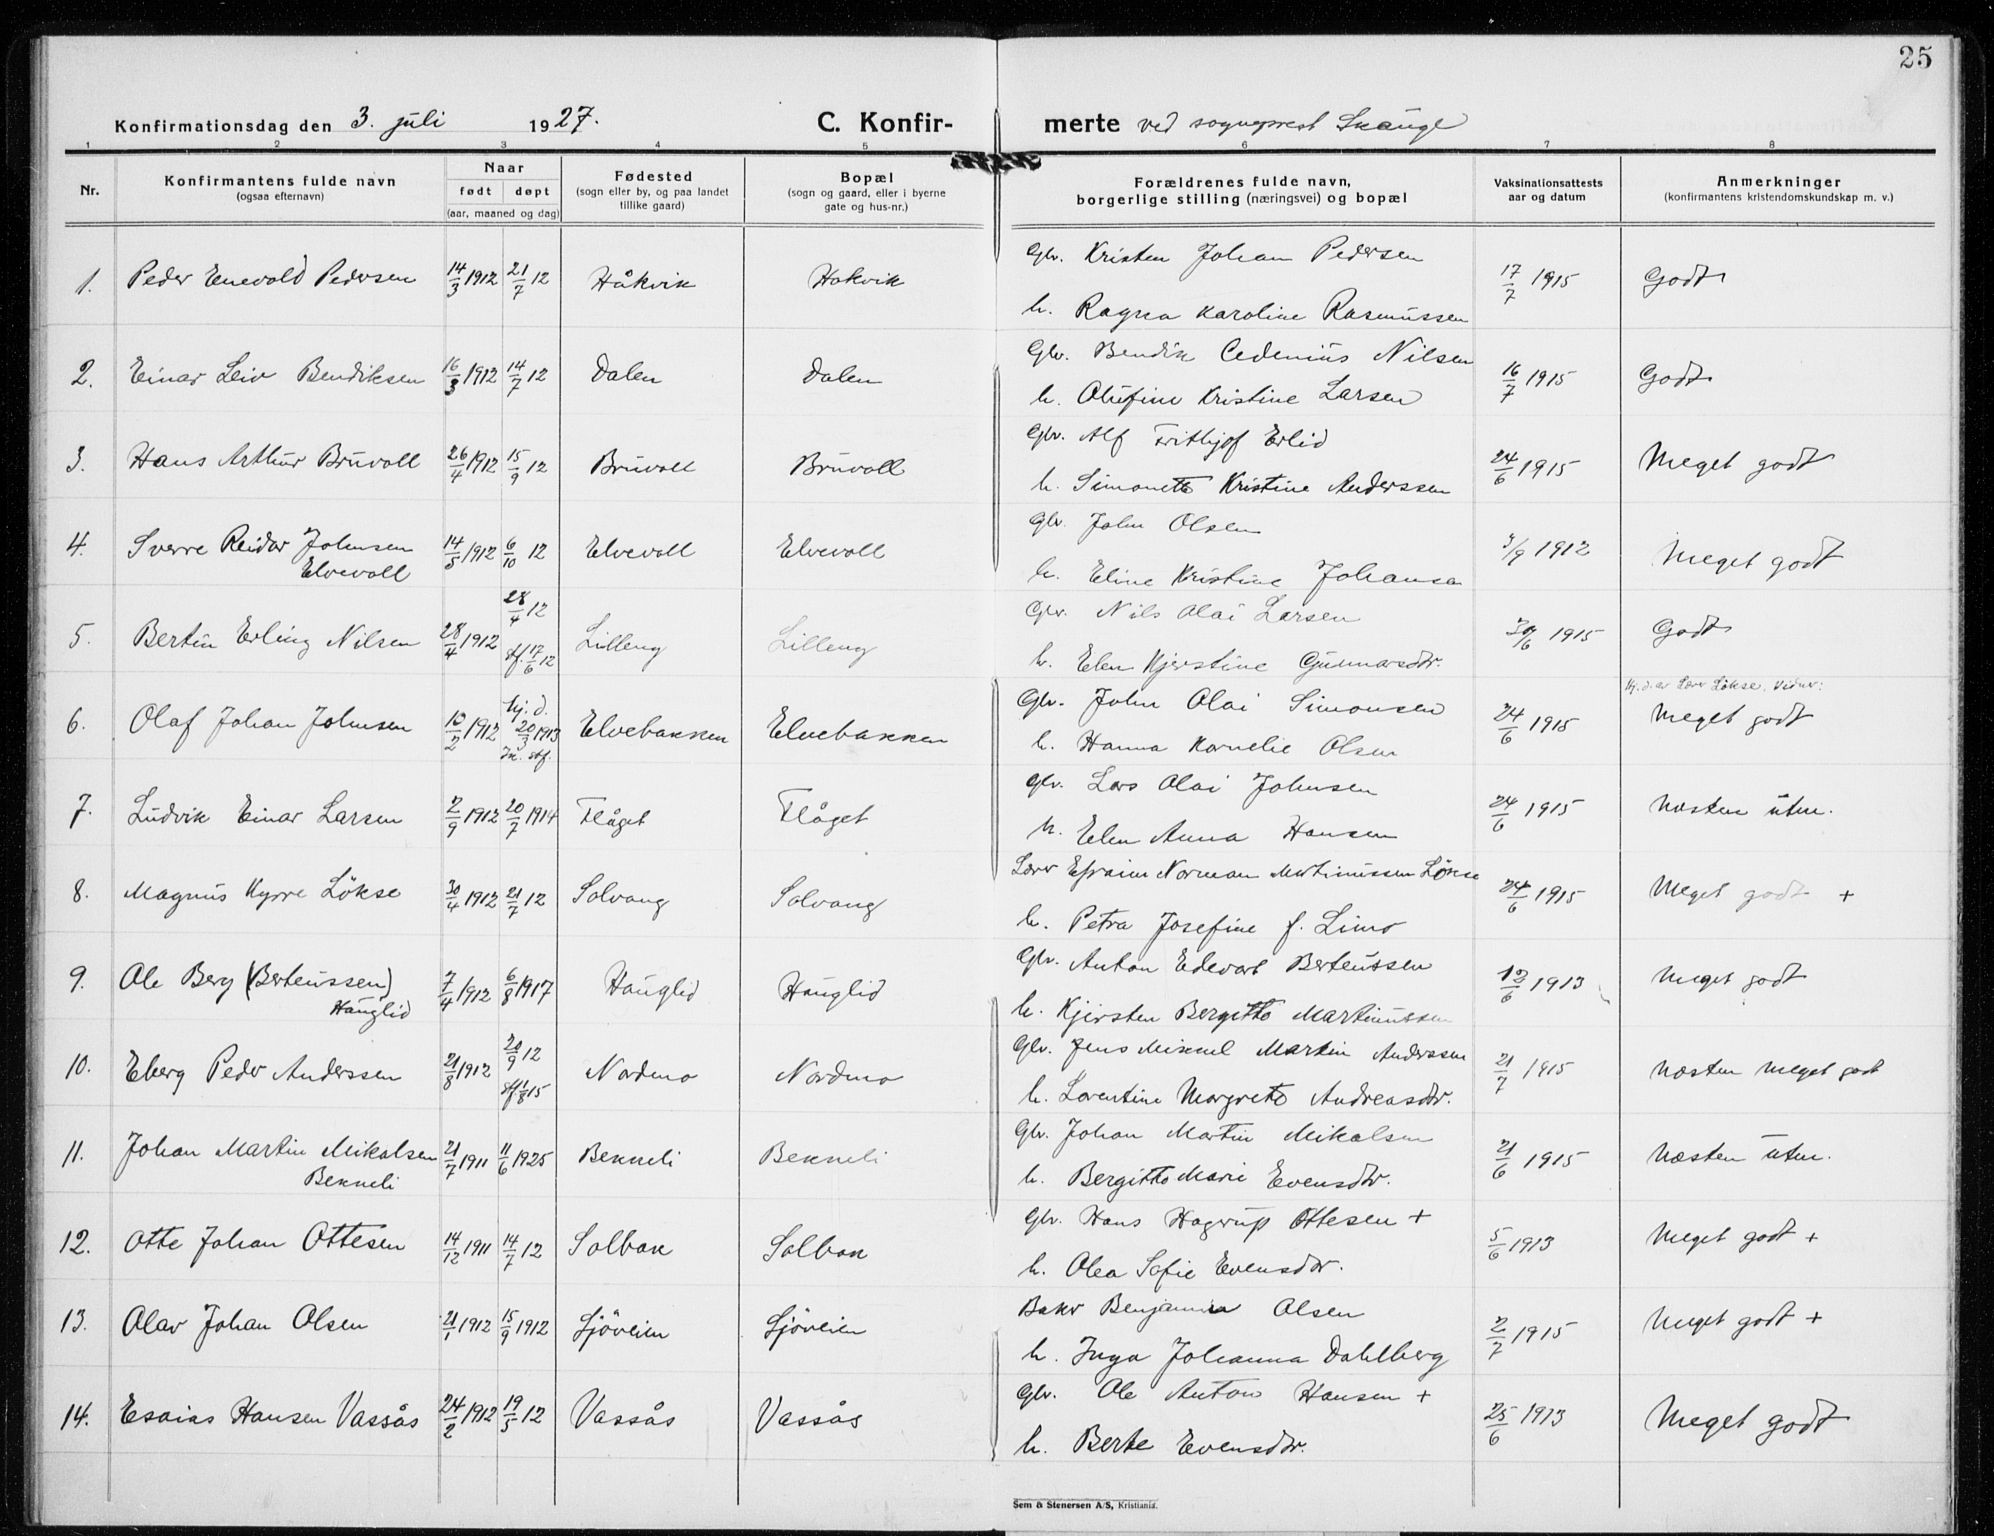 25
Konfirmationsdag den 3. juli 1927. C. Konfir- merte ved sogneprest Skauge
1 2 3 4 5 6 7 8
Nr. Konfirmantens fulde navn (ogsaa efternavn) Naar født døpt (aar, maaned og dag) Fødested (sogn eller by, og paa landet tillike gaard) Bopæl (sogn og gaard, eller i byerne gate og hus-nr.) Forældrenes fulde navn, borgerlige stilling (næringsvei) og bopæl Vaksinationsattests aar og datum Anmerkninger (konfirmantens kristendomskundskap m. v.)
1. Peder Enevold Pedersen 14/3 1912 21/7 12 Håkvik Hakvik Gbr. Kristen Johan Pedersen 17/7 1915 Godt
h. Ragna Karoline Rasmussen
2. Einar Leiv Bendiksen 16/3 1912 14/7 12 Dalen Dalen Gbr. Bendik Cedenius Nilsen 16/7 1915 Godt
h. Olufine Kristine Larsen
3. Hans Arthur Bruvoll 26/4 1912 15/9 12 Bruvoll Bruvoll Gbr. Alf Frithjof Erlid 24/6 1915 Meget godt
h. Simonette Kristine Anderssen
4. Sverre Reidar Johnsen 14/5 1912 6/10 12 Elvevoll Elvevoll Gbr. John Olsen 3/9 1912 Meget godt
Elvevoll h. Eline Kristine Johansa
5. Bertin Erling Nilsen 28/4 1912 28/4 12 stf. 17/6 12 Lilleng Lilleng Gbr. Nils Olai Larsen 30/6 1915 Godt
h. Elen Kjerstine Gunnarsdtr.
6. Olaf Johan Johnsen 10/2 1912 hj. d. 20/3 1913 stf. Elvebakken Elvebakken Gbr. John Olai Simonsen 24/6 1915 hj. d. av Lærer Lökse. Vidner:
Meget godt
h. Hanna Kornelie Olsen
7. Ludvik Einar Larsen 2/9 1912 20/7 1914 Flåget Flåget Gbr. Lars Olai Johnsen 24/6 1915 Næsten utm.
h. Elen Anna Hansen
8. Magnus Kyrre Lökse 30/4 1912 21/7 12 Solvang Solvang Lærer Efraim Norman Martinussen Lökse 24/6 1915 Meget godt +
h. Petra Josefine f. Limo
9. Ole Berg (Berteussen) 7/4 1912 6/8 1917 Hauglid Hauglid Gbr. Anton Edevart Berteussen 12/6 1913 Meget godt
Hauglid h. Kjersten Bergitte Martinussen
10. Eberg Peder Anderssen 21/8 1912 20/9 12 stf. 1/8 15 Nordmo Nordmo Gbr. Jens Mikkel Martin Anderssen 21/7 1915 Næsten meget godt
h. Lorentine Margrete Andreasdtr.
11. Johan Martin Mikalsen 21/7 1911 11/6 1925 Bekkeli Bekkeli Gbr. Johan Martin Mikalsen 21/6 1915 Næsten utm.
Bekkeli h. Bergitte Marie Evensdtr.
12. Otte Johan Ottesen 14/12 1911 14/7 12 Solbak Solbak Gbr. Hans Hagrup Ottesen + 5/6 1913 Meget godt +
h. Olea Sofie Evensdtr.
13. Olav Johan Olsen 21/1 1912 15/9 1912 Sjöveien Sjöveien Baker Benjamin Olsen 2/7 1915 Meget godt +
h. Inga Johanna Dahlberg
14. Esaias Hansen Vassås 24/2 1912 19/5 12 Vassås Vassås Gbr. Ole Anton Hansen + 25/6 1913 Meget godt
h. Berte Evensdtr.
Sem & Stenersen A/S, Kristiania.